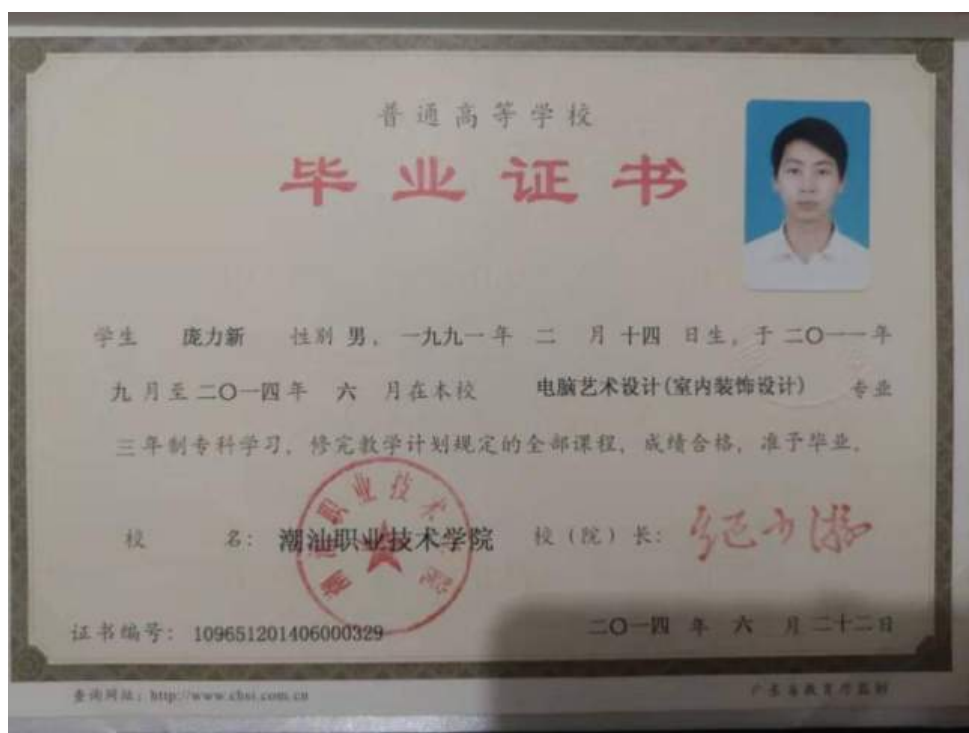 普通高等学校
毕业证书
学生 庞力新 性别 男, 一九九一年 二 月 十四 日生, 于 二〇一一年
九 月至 二〇一四 年 六 月在本校 电脑艺术设计(室内装饰设计) 专业
三年制专科学习, 修完教学计划规定的全部课程, 成绩合格, 准予毕业。
校 名: 潮汕职业技术学院 校(院)长:
潮汕职业技术学院
证书编号: 109651201406000329 二〇一四 年 六 月 二十二日
查询网址: http://www.chsi.com.cn 广东省教育厅监制